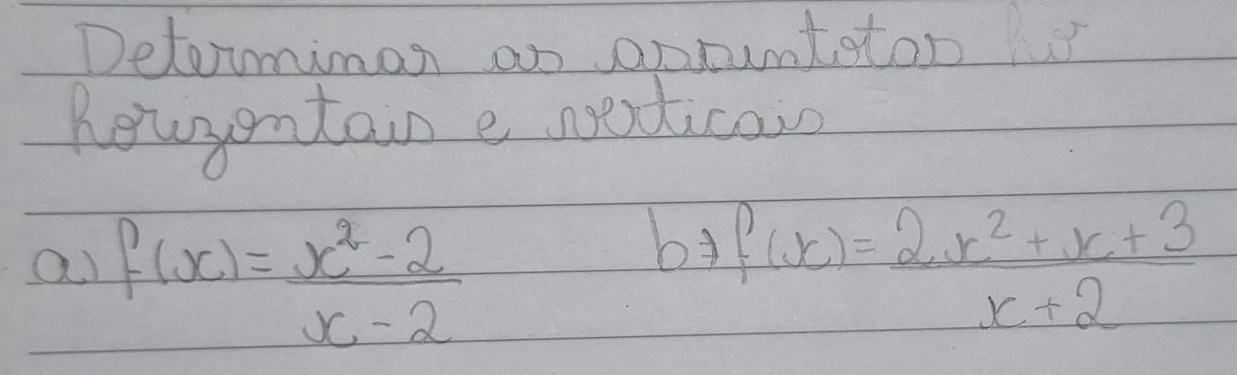 Determinar as assuntotas hor
horizontais e verticais
a) f(x) = x² - 2 / x - 2 b) f(x) = 2x² + x + 3 / x + 2